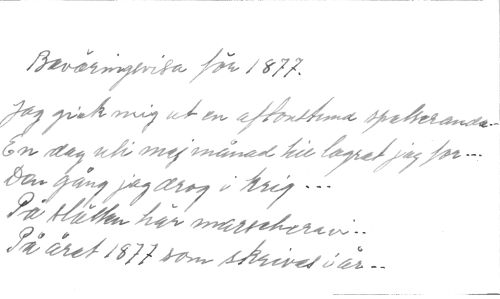 Beväringsvisa för 1877.
Jag gick mig ut en aftonstund spatserande--
En dag uti maj månad till lägret jag for---
Den gång jag drog i krig ---
På slätten här marschera vi--
På året 1877 som skrives i år--